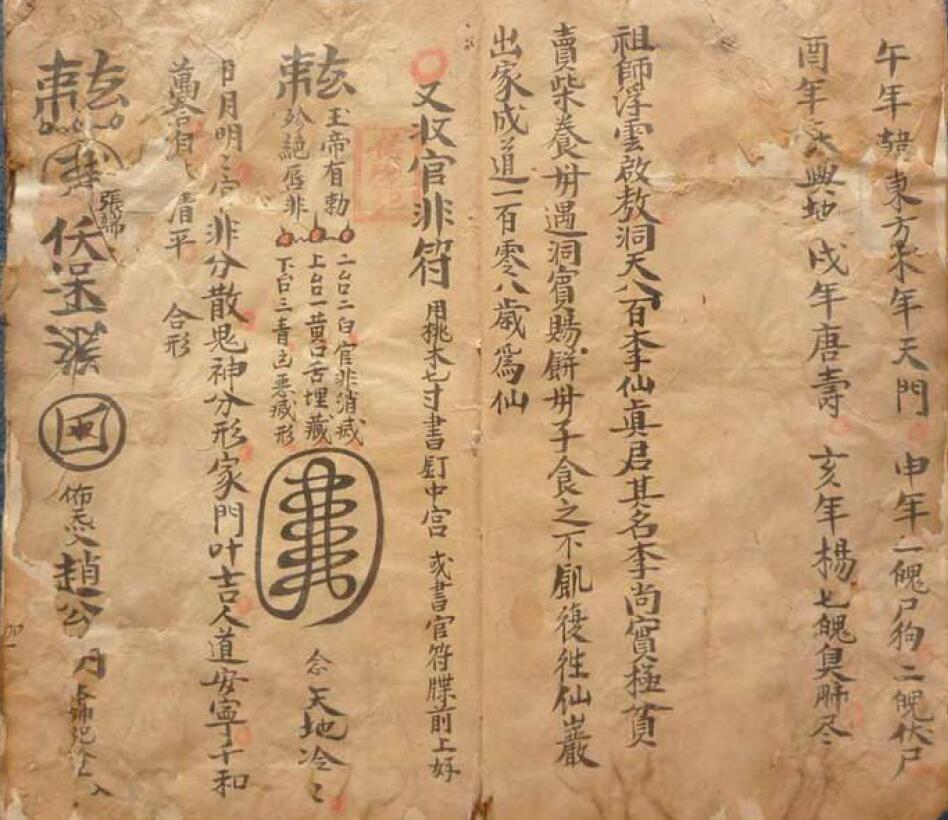 午年 東方 未年天門 申年一魄尸狗二魄伏尸
酉年天興地 戌年唐壽 亥年楊 七魄臭肺尽
祖師浮雲啟教洞天八百李仙真君其名李尚實極貧
賣柴養毋遇洞賓賜餅毋子食之不飢後徃仙巖
出家成道一百零八歲爲仙
又收官非符 用桃木七寸書釘中宫 或書官符牒前上好
玉帝有勅
殄絕唇非
二台二白官非消滅
上台一黄口舌埋藏
下台三青凶惡滅形
念天地冷〻
日月明〻官非分散鬼神分形家門叶吉人道安寧千和
萬合自 清平 合形
張 趙公